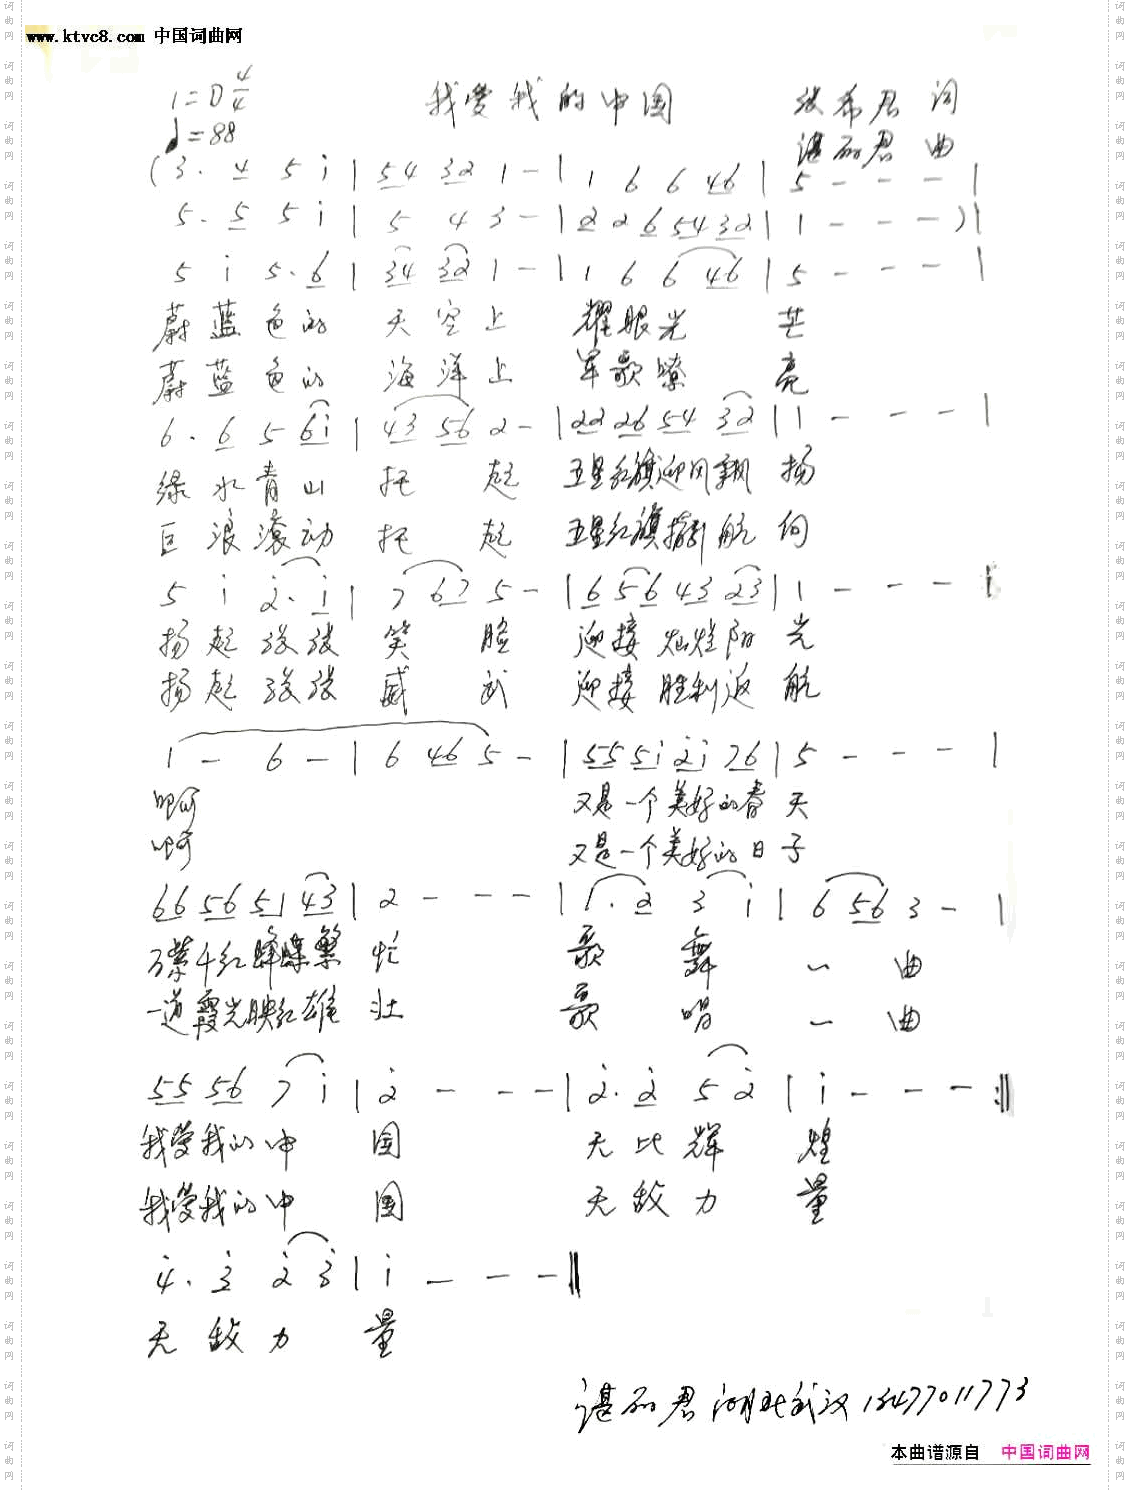 www.ktvc8.com 中国词曲网
1=D 4/4
♩=88
我爱我的中国
张希君 词
谌丽君 曲
(3. 4 5 i | 54 32 1 - | 1 6 6 46 | 5 - - - |
5. 5 5 i | 5 4 3 - | 2 2 6 54 32 | 1 - - - )|
5 i 5. 6 | 34 32 1 - | 1 6 6 46 | 5 - - - |
蔚蓝色的 天空上 耀眼光 芒
蔚蓝色的 海洋上 军歌嘹 亮
6. 6 5 6i | 43 56 2 - | 22 26 54 32 | 1 - - - |
绿水青山 托 起 五星红旗迎风飘 扬
巨浪滚动 托 起 五星红旗指引航 向
5 i 2. i | 7 67 5 - | 6 5 6 43 23 | 1 - - - |
扬起张张 笑 脸 迎接灿烂阳 光
扬起张张 威 武 迎接胜利返 航
1 - 6 - | 6 46 5 - | 55 5i 2i 76 | 5 - - - |
啊 又是一个美好的春 天
啊 又是一个美好的日 子
66 56 51 43 | 2 - - - | 1. 2 3 i | 6 56 3 - |
万紫千红蜂蝶繁 忙 歌 舞 一 曲
一道霞光映红雄 壮 歌 唱 一 曲
55 56 7 i | 2 - - - | 2. 2 5 2 | i - - - :||
我爱我的中 国 无比辉 煌
我爱我的中 国 无敌力 量
4. 3 2 3 | i - - - ||
无敌力 量
谌丽君 湖北武汉 13477011773
本曲谱源自 中国词曲网